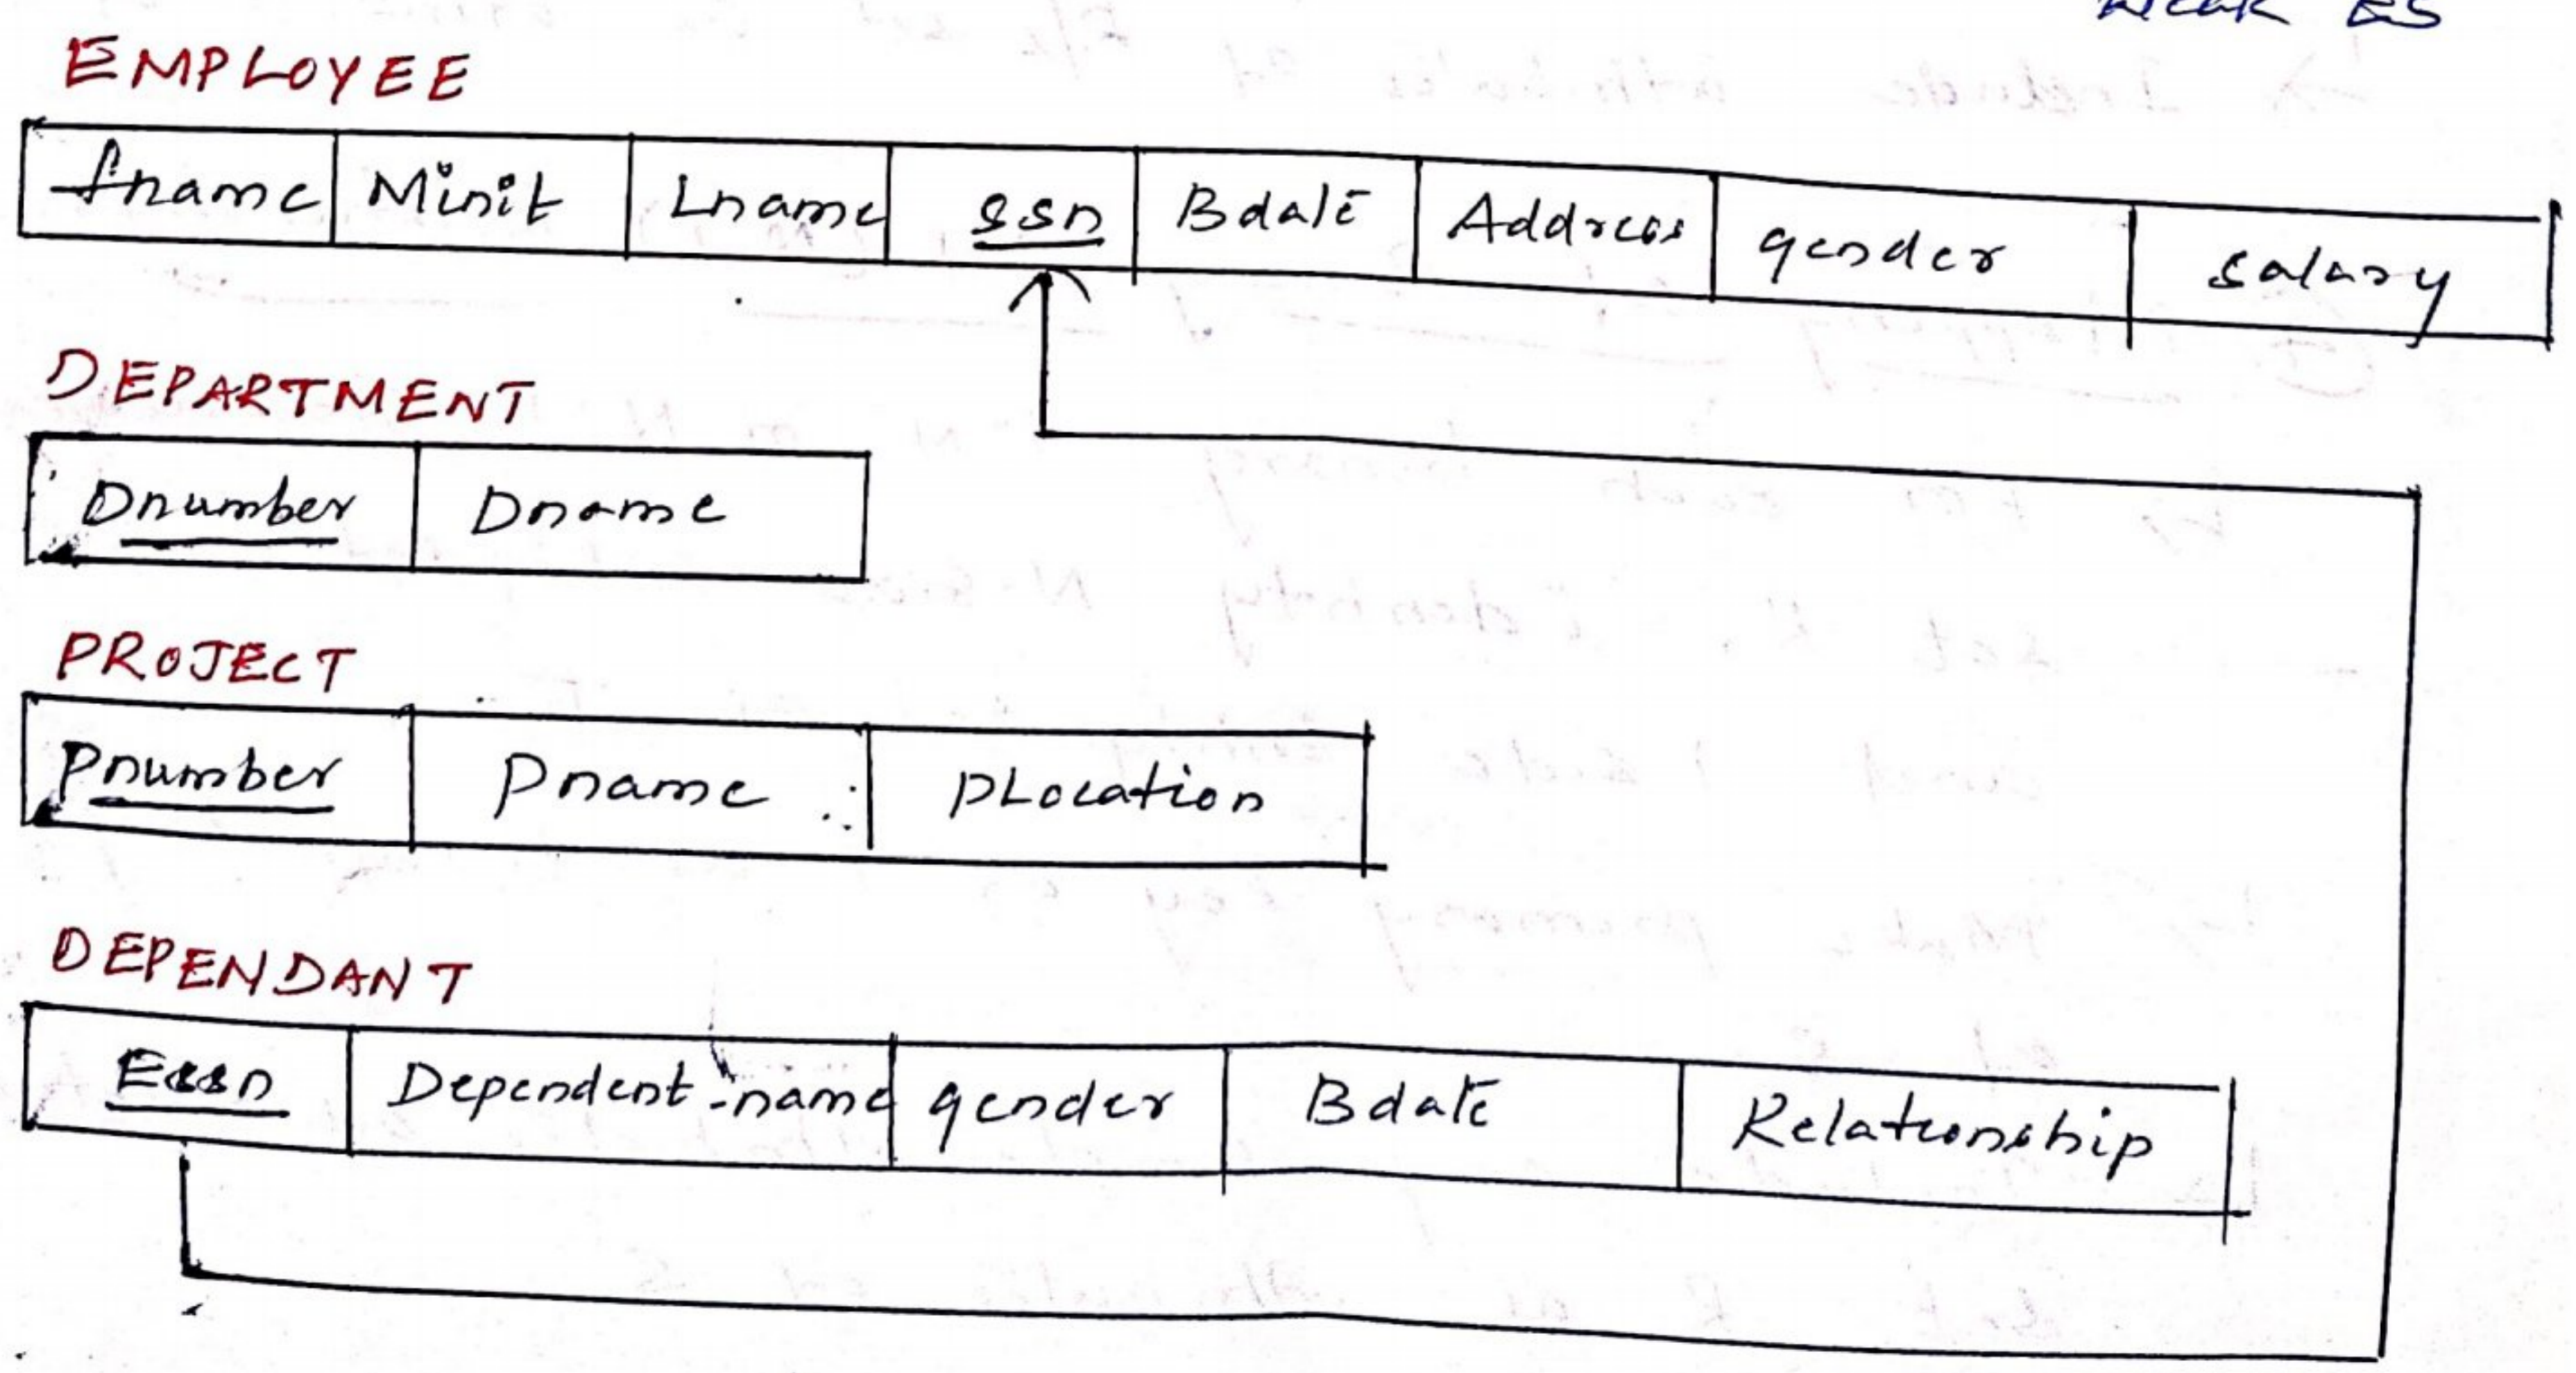 Weak ES
EMPLOYEE
fname Minit Lname ssn Bdate Address gender salary
DEPARTMENT
Dnumber Dname
PROJECT
Pnumber Pname PLocation
DEPENDANT
Essn Dependent-name gender Bdate Relationship